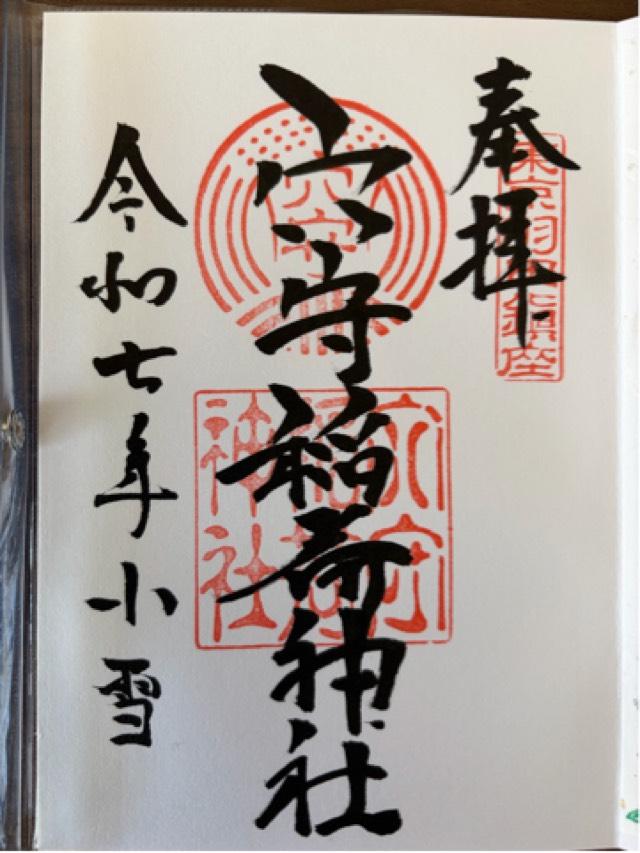 奉拝
東京羽田鎮座
穴守
穴守稲荷神社
穴守稲荷神社
令和七年小雪